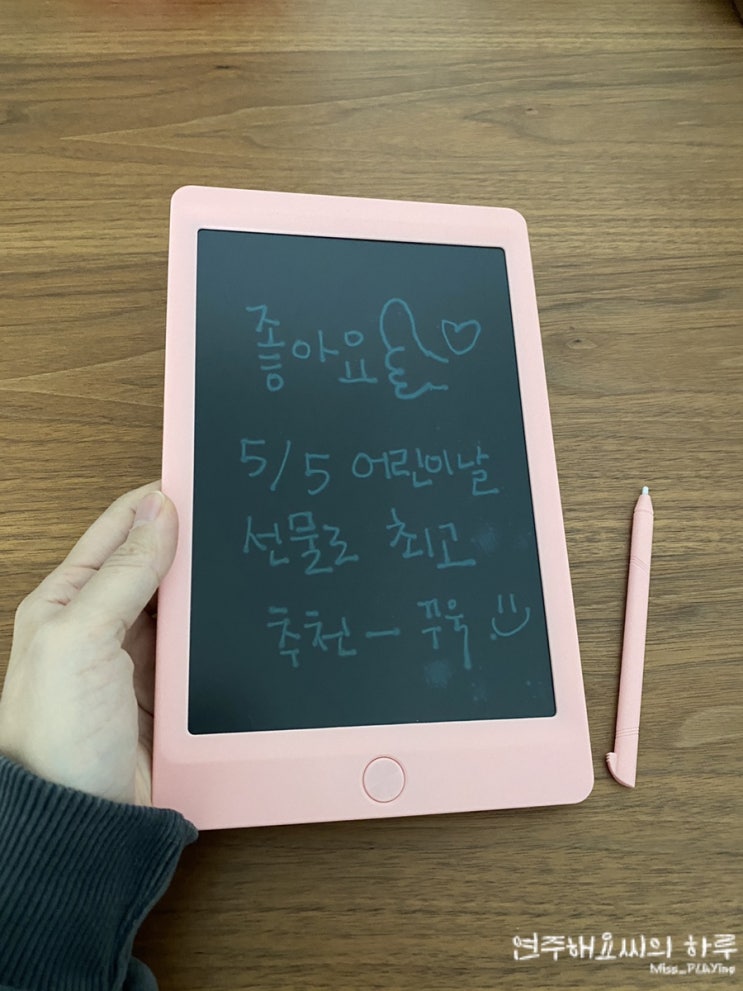 좋아요
5/5 어린이날
선물로 최고
추천ㅡ 꾸욱
연주해요씨의 하루
Miss_PLAYing